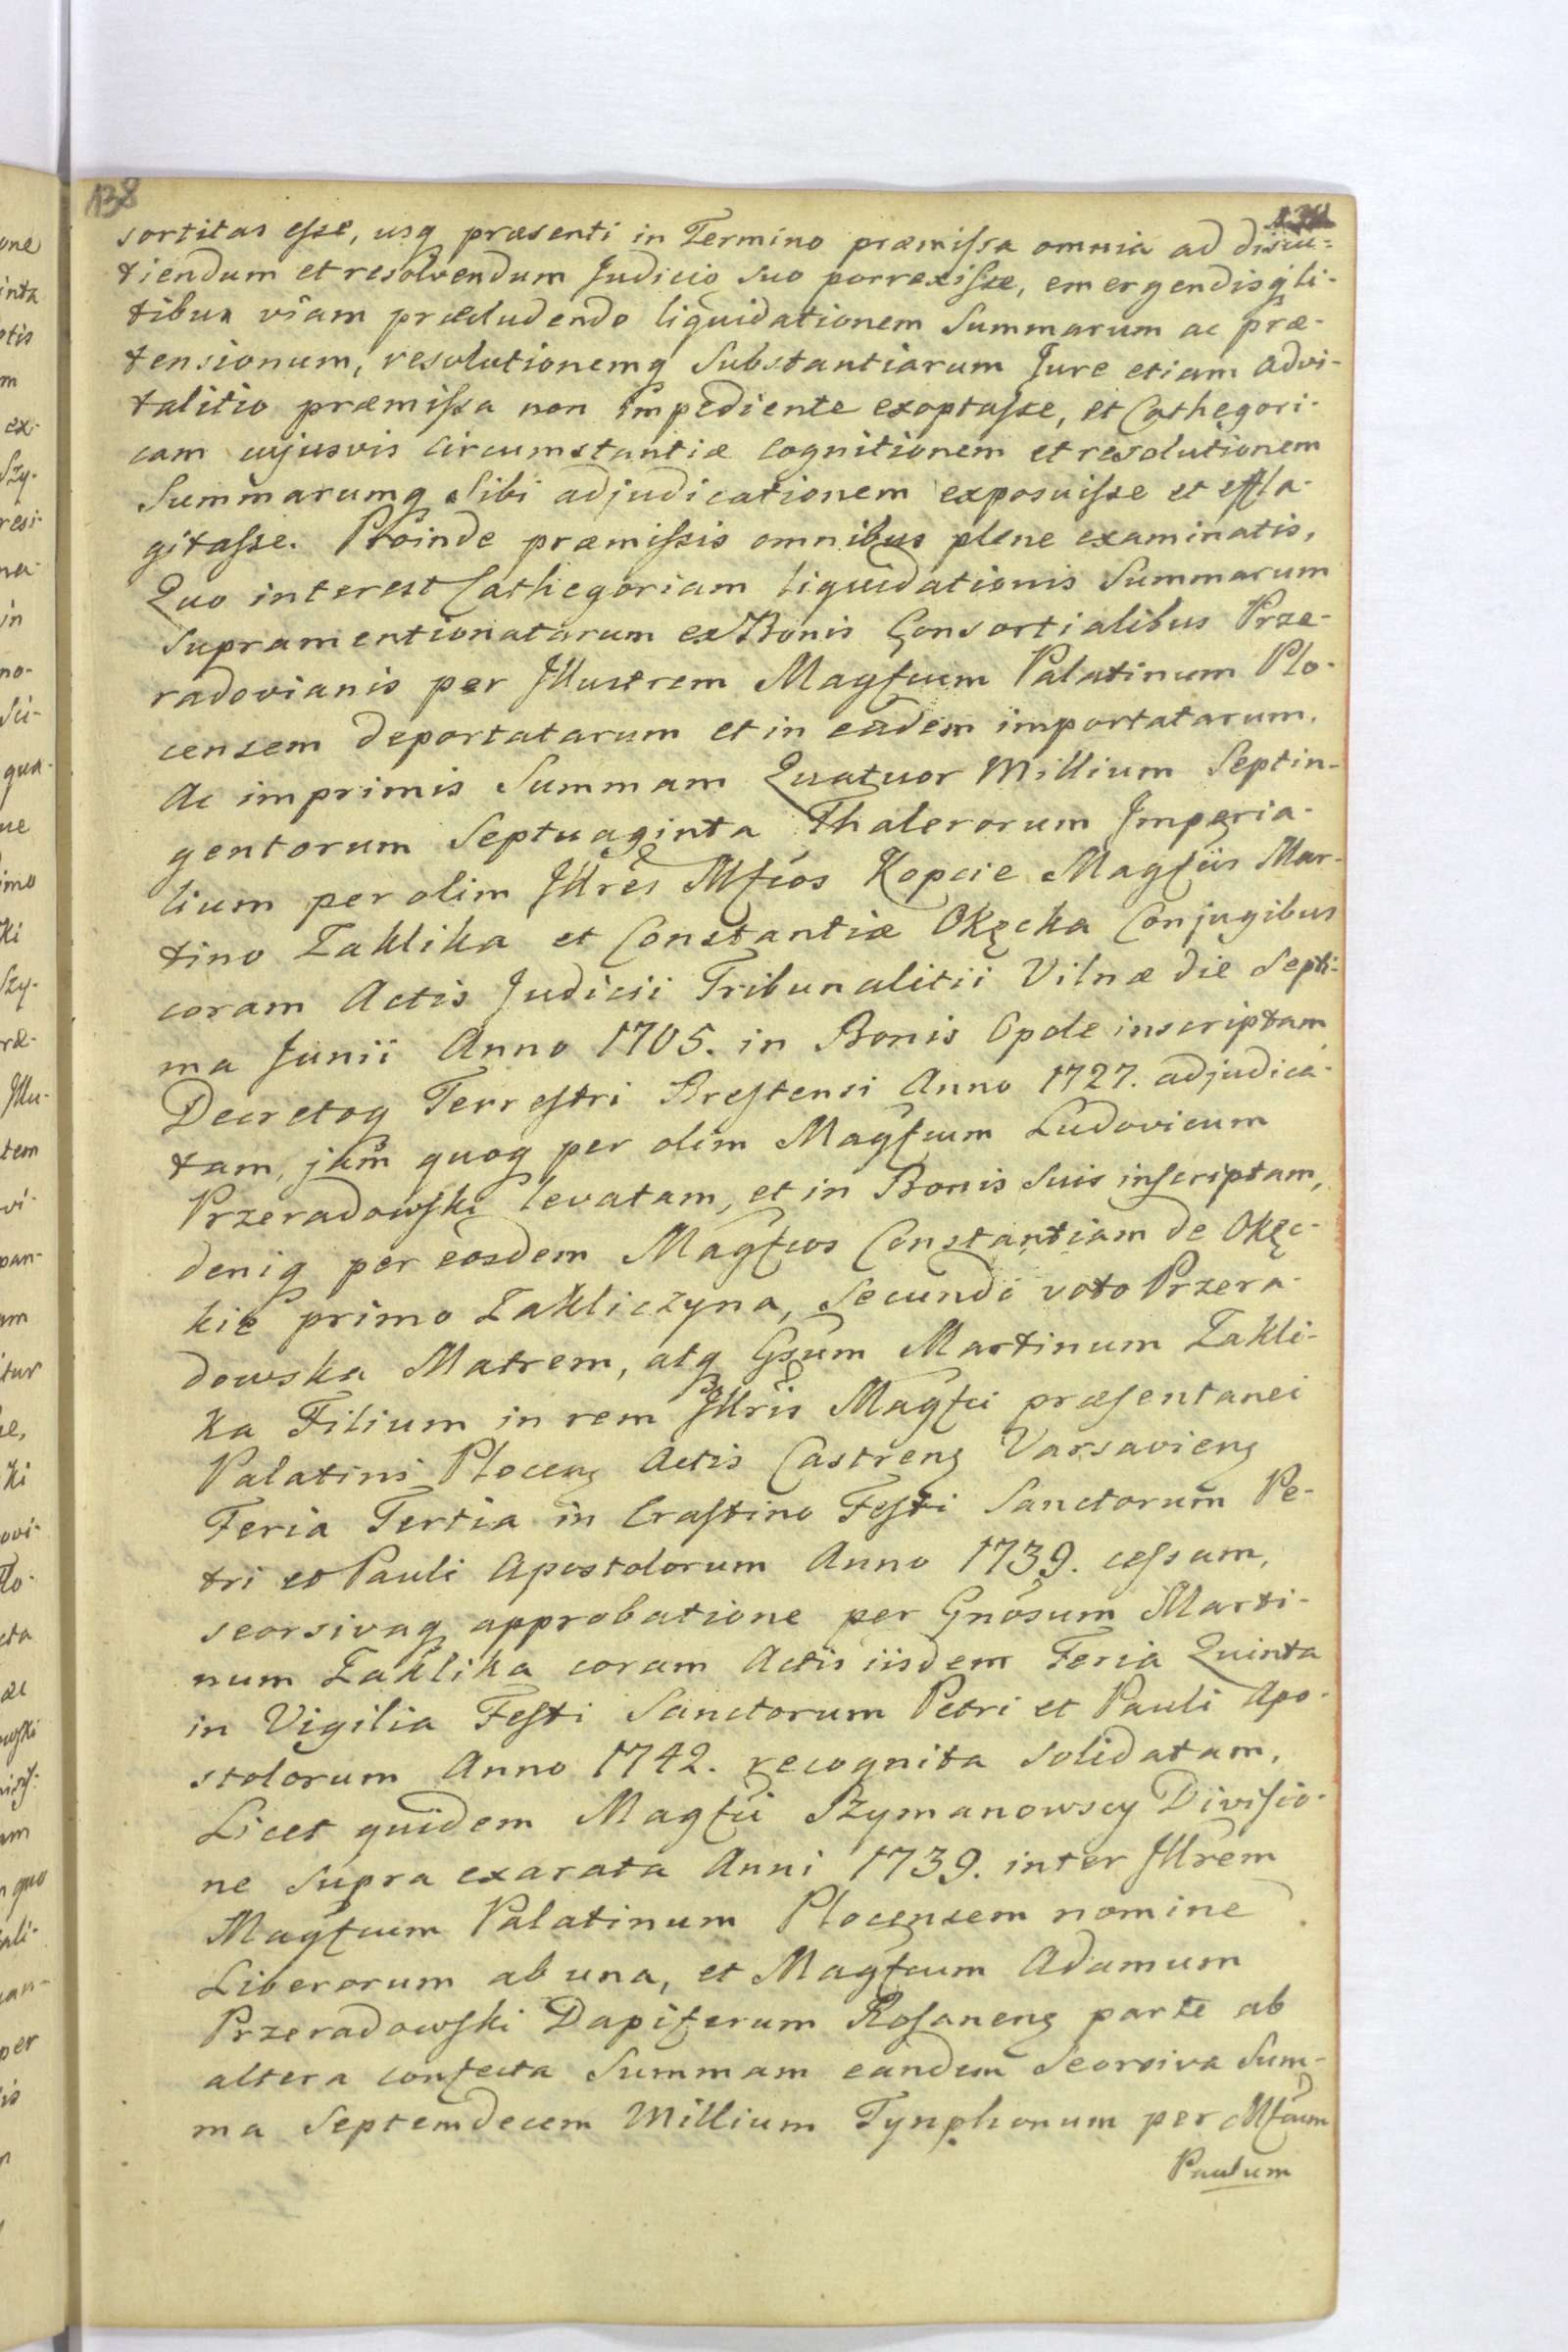 138
sortitas esse, usq præsenti in Termino præmissa omnia ad discu=
tiendum et resolvendum Judicio suo porrexisse, emergendisq li-
tibus viam præcludendo liquidationem Summarum ac præ-
tensionum, resolutionemq Substantiarum Jure etiam advi-
talitio præmissa non impediente exoptasse, et Cathegori-
cam cujusvis circumstantiæ cognitionem et resolutionem
Summarumq sibi adjudicationem exposuisse et effla-
gitasse. Proinde præmissis omnibus plene examinatis,
Quo interest Cathegoriam liquidationis Summarum
supramentionatarum ex Bonis Consortialibus Prze-
radovianis per Illustrem Magfcum Palatinum Plo-
censem deportatarum et in eadem importatarum.
Ac imprimis Summam Quatuor Millium Septin-
gentorum Septuaginta Thalerorum Imperia-
lium per olim Illres Mfcos Kopcie Magfcis Mar-
tino Zaklika et Constantiæ Okęcka Conjugibus
coram Actis Judicii Tribunalitii Vilnæ die Septi-
ma Junii Anno 1705. in Bonis Opole inscriptam
Decretoq Terrestri Brestensi Anno 1727. adjudica-
tam, jam quoq per olim Magfcum Ludovicum
Przeradowski levatam, et in Bonis suis inscriptam,
deniq per eosdem Magfcos Constantiam de Okęc-
kie primo Zakliczyna, Secundo voto Przera-
dowska Matrem, atq Gsum Martinum Zakli-
ka Filium in rem Illris Magfci præsentanei
Palatini Plocens Actis Castrens Varsaviens
Feria Tertia in Crastino Festi Sanctorum Pe-
tri et Pauli Apostolorum Anno 1739. cessam,
seorsivaq approbatione per Gnosum Marti-
num Zaklika coram Actis iisdem Feria Quinta
in Vigilia Festi Sanctorum Petri et Pauli Apo-
stolorum Anno 1742. recognita solidatam.
Licet quidem Magfci Szymanowscy Divisio-
ne supra exarata Anni 1739. inter Illrem
Magfcum Palatinum Plocensem nomine
Liberorum ab una, et Magfcum Adamum
Przeradowski Dapiferum Rosanens parte ab
altera confecta Summam eandem seorsiva Sum-
ma Septemdecem Millium Tynphonum per Mfcum
Paulum